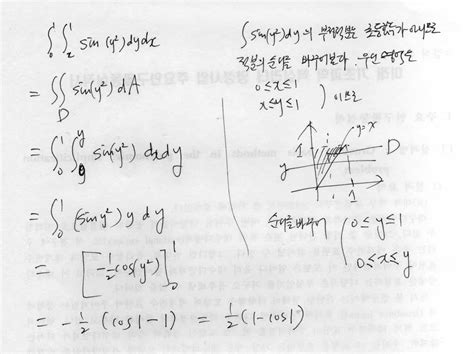 ∫₀¹∫ₓ¹ sin(y²) dydx
= ∬_D sin(y²) dA
= ∫₀¹∫₀^y sin(y²) dxdy
= ∫₀¹ (sin y²) y dy
= [-½cos(y²)]₀¹
= -½ (cos1-1) = ½(1-cos1)
∫sin(y²)dy의 부정적분은 초등함수가 아니므로
적분의 순서를 바꾸어보자. 우선 영역은
0≤x≤1
x≤y≤1 ) 이므로
y=x
1
D
y
1
순서를 바꾸어 ( 0≤y≤1
0≤x≤y